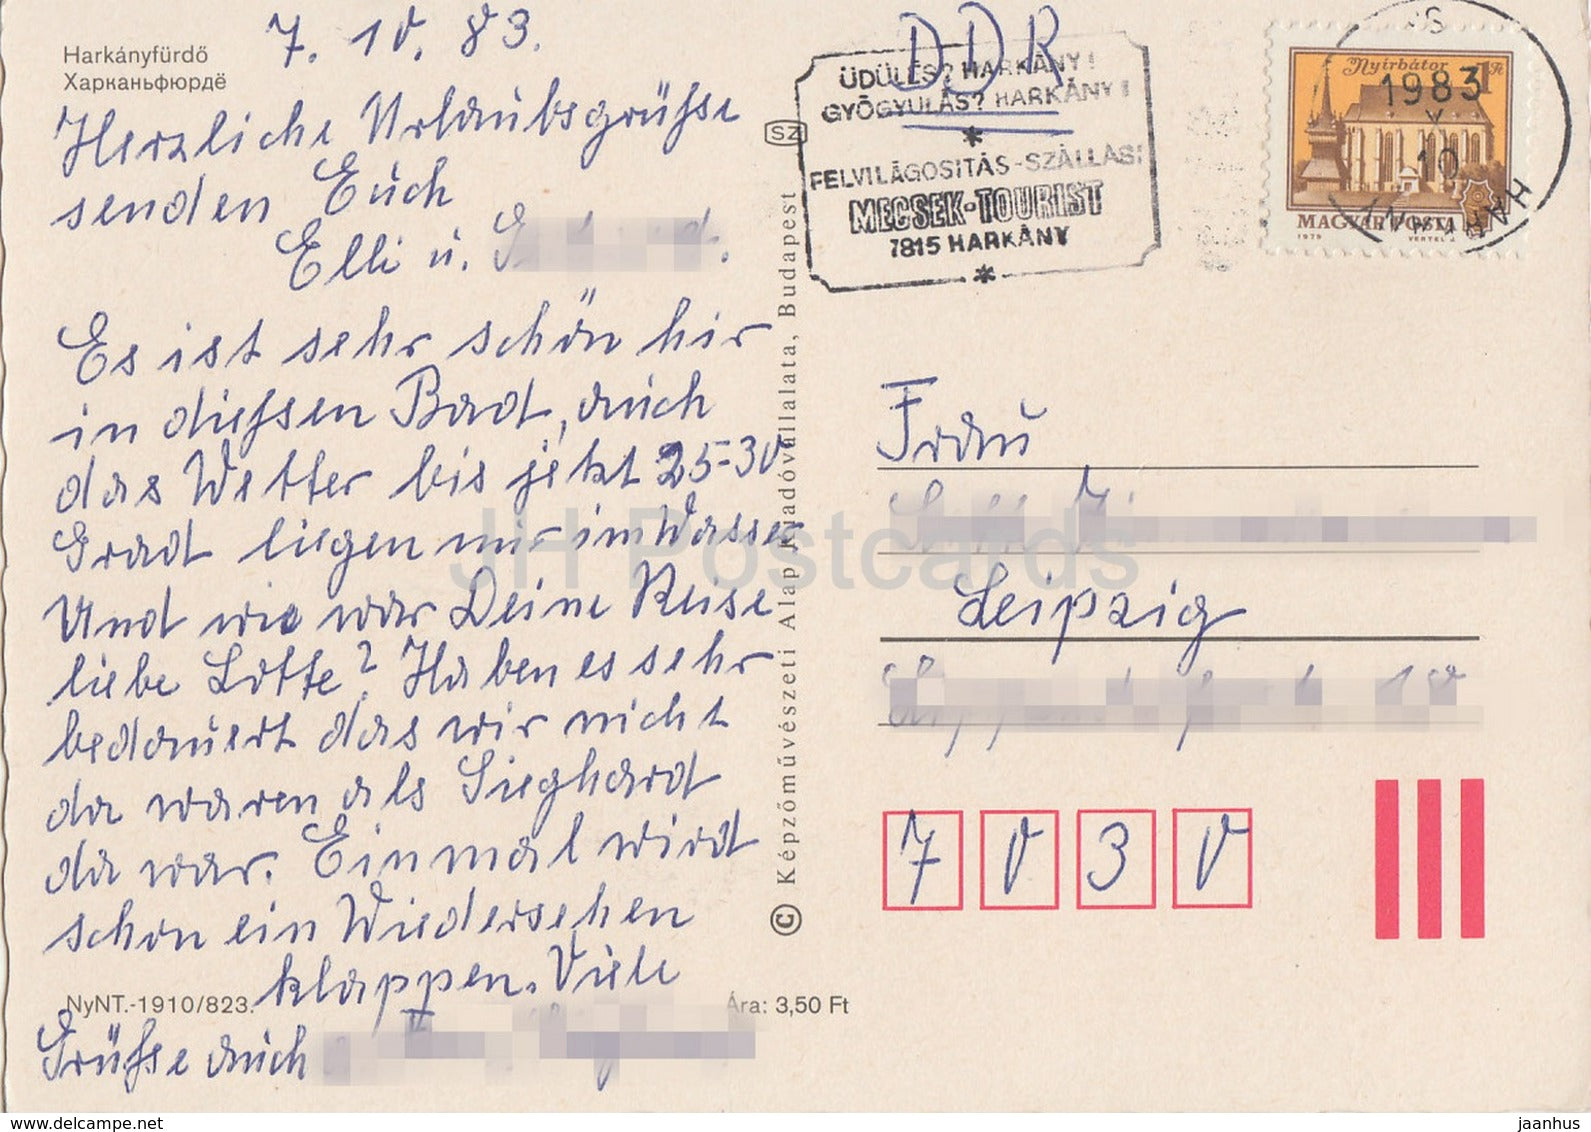 Harkányfürdő
Харканьфюрдё
7. 10. 83.
Herzliche Urlaubsgrüßse
senden Euch
Elli u.
Es ist sehr schön hir
in dießsen Bad, auch
das Wetter bis jetzt 25-30
Grad liegen mir im Wasser
Und wie war Deine Reise
liebe Lotte? Haben es sehr
bedauert das wir nicht
da waren als Sieghard
da war. Einmal wird
schon ein Wiedersehen
klappen. Viele
Grüßse auch
NyNT.-1910/823.
Ára: 3,50 Ft
SZ
© Képzőművészeti Alap Kiadóvállalata, Budapest
DDR
ÜDÜLÉS? HARKÁNY!
GYÓGYULÁS? HARKÁNY!
*
FELVILÁGOSITÁS-SZÁLLÁS:
MECSEK-TOURIST
7815 HARKÁNY
*
Nyírbátor 1 Ft
MAGYAR POSTA
1979 VERTEL J.
1983
V
10
HARKÁNY
Frau
Leipzig
10
7030
JH Postcards
www.delcampe.net
jaanhus